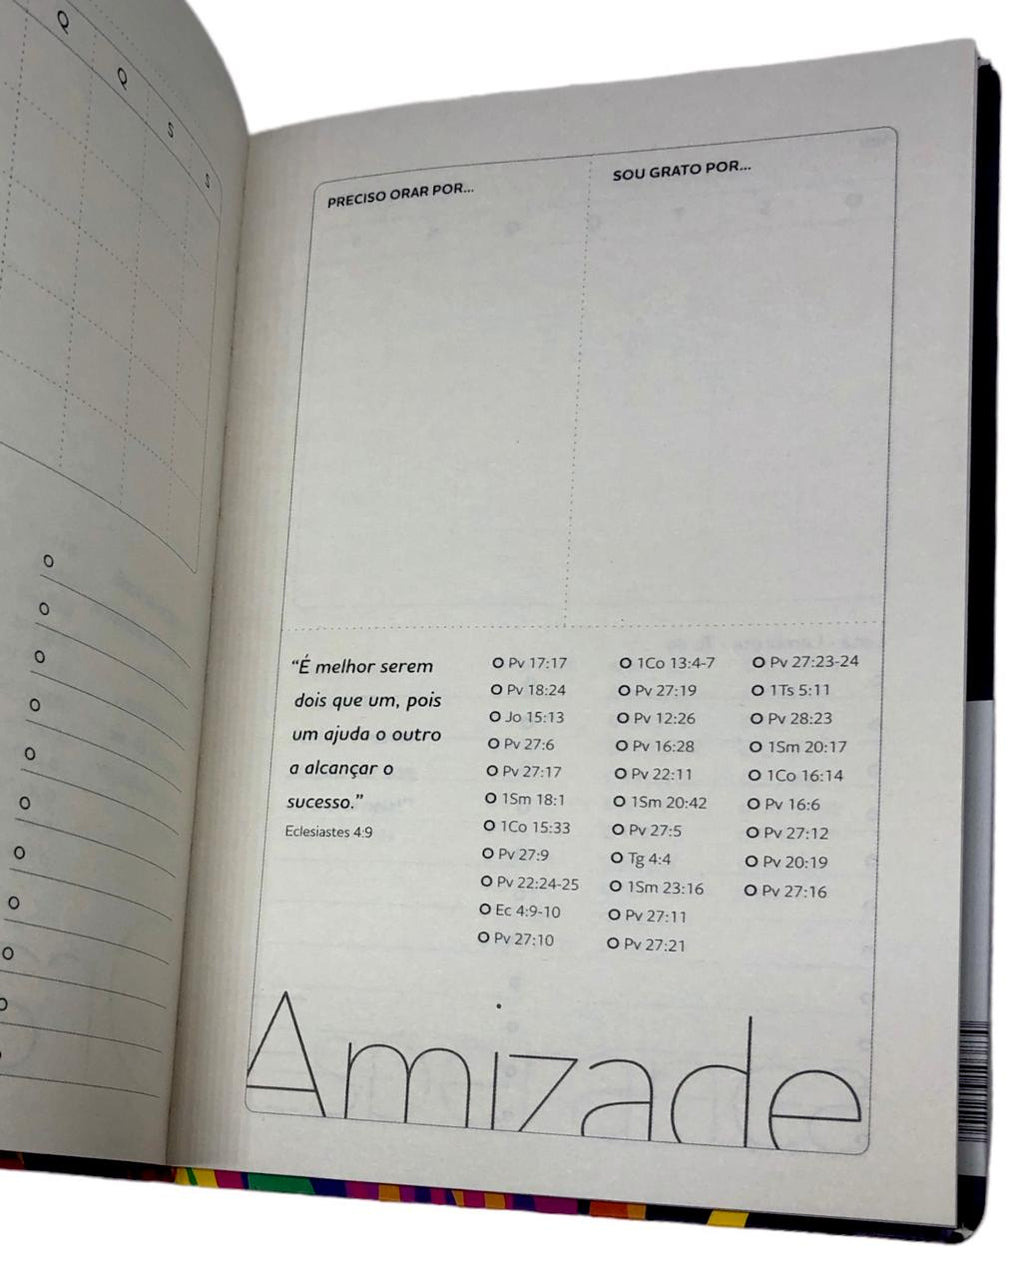 Q
Q
S
S
PRECISO ORAR POR...
SOU GRATO POR...
“É melhor serem
dois que um, pois
um ajuda o outro
a alcançar o
sucesso.”
Eclesiastes 4:9
Pv 17:17
Pv 18:24
Jo 15:13
Pv 27:6
Pv 27:17
1Sm 18:1
1Co 15:33
Pv 27:9
Pv 22:24-25
Ec 4:9-10
Pv 27:10
1Co 13:4-7
Pv 27:19
Pv 12:26
Pv 16:28
Pv 22:11
1Sm 20:42
Pv 27:5
Tg 4:4
1Sm 23:16
Pv 27:11
Pv 27:21
Pv 27:23-24
1Ts 5:11
Pv 28:23
1Sm 20:17
1Co 16:14
Pv 16:6
Pv 27:12
Pv 20:19
Pv 27:16
Amizade